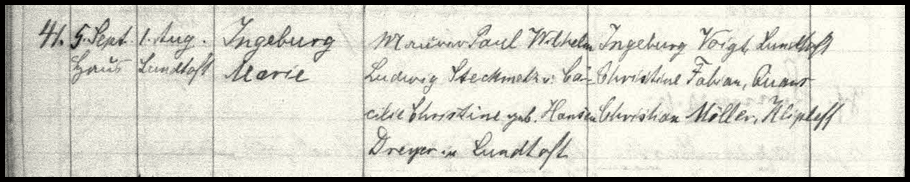 41. 5. Sept. 1. Aug. Ingeburg Maurer Paul Wilhelm Ingeburg Voigt, Lundtoft
Haus Lundtoft Marie Ludwig Steckmetz u. Cä- Christine Fabian, Quars
cilie Christine geb. Hansen Christian Möller, Klipleff
Dreyer in Lundtoft